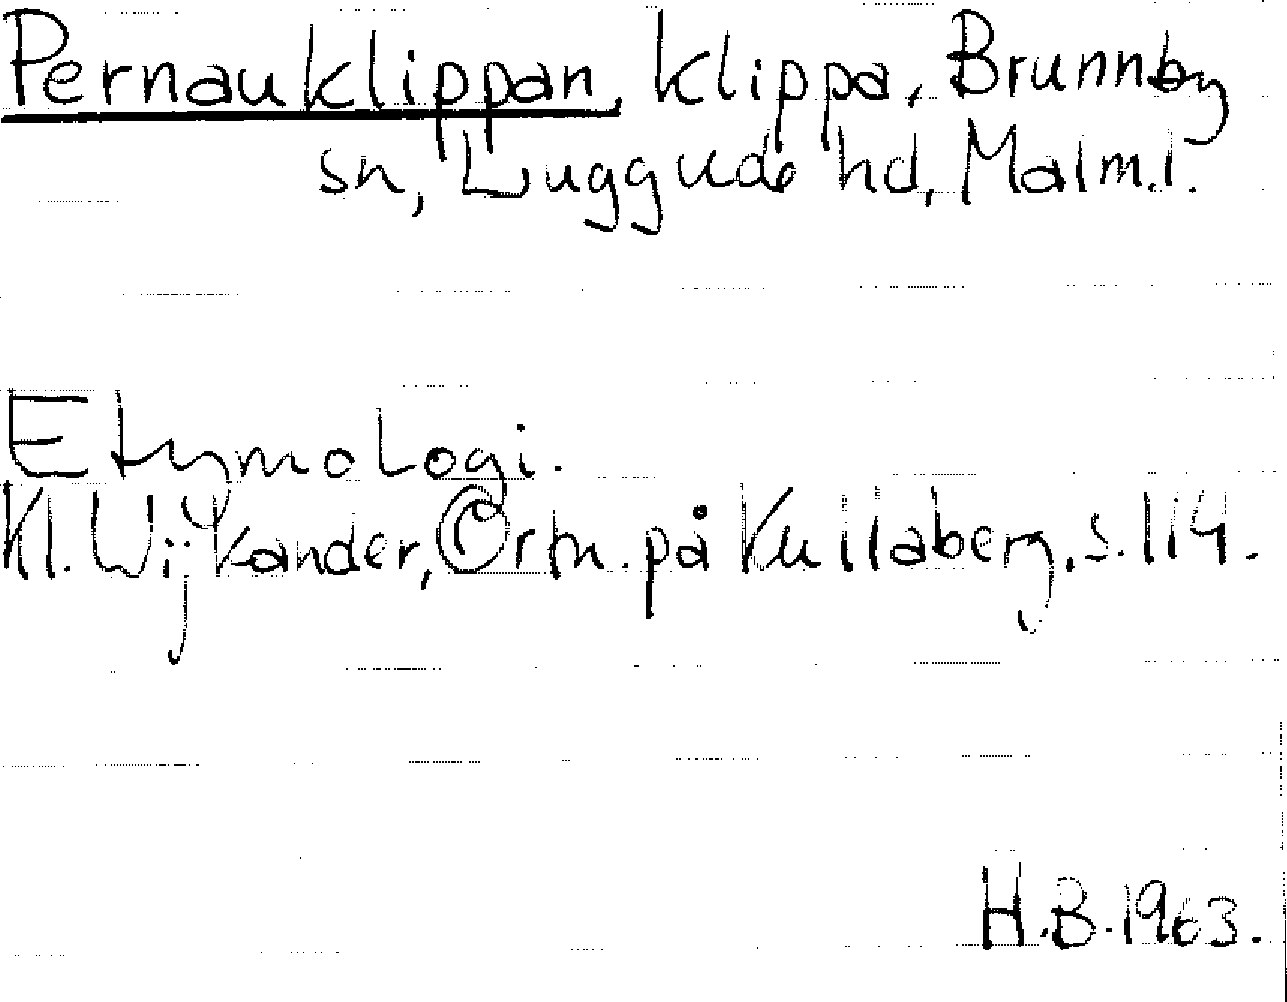 Pernauklippan, klippa, Brunnby
sn, Luggude hd, Malm.l.
Etymologi.
Kl. Wijkander, Ortn. på Kullaberg, s. 114.
H.B. 1963.